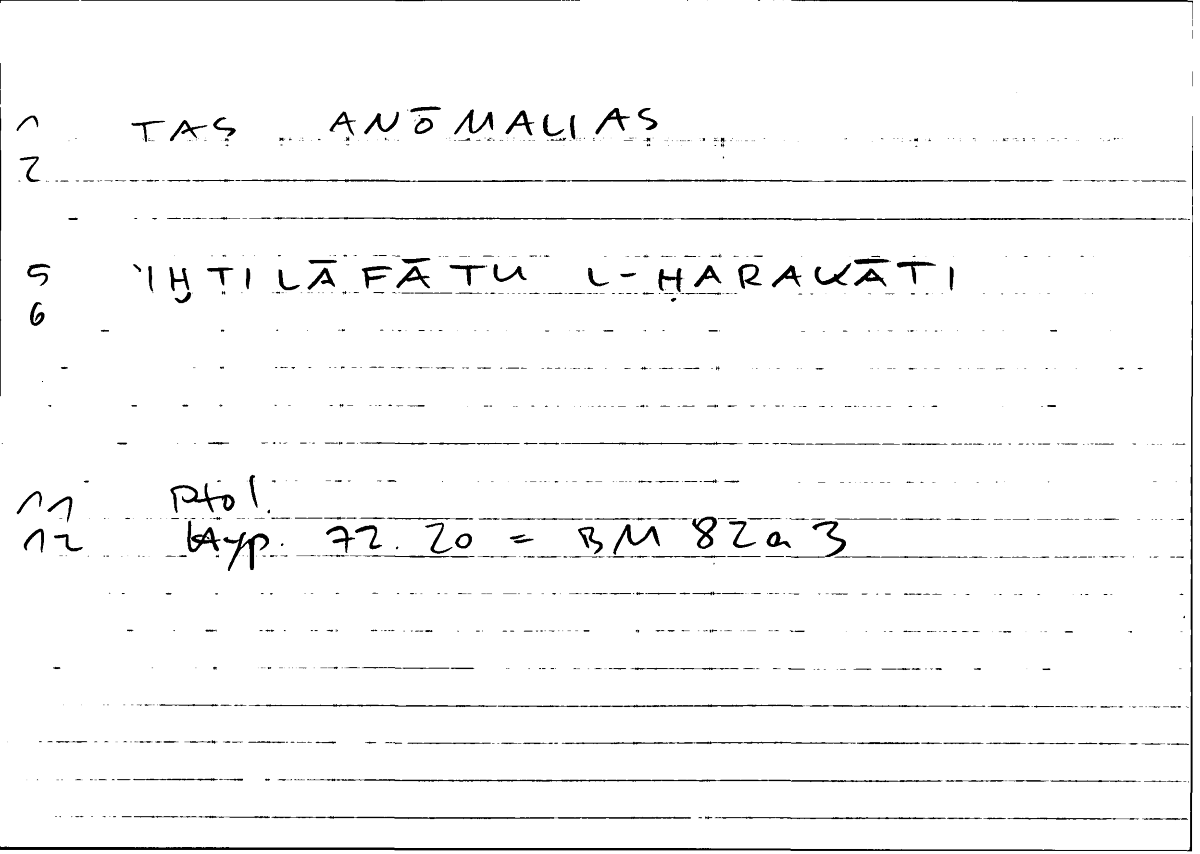 1 TAS ANŌMALIAS
2
5 'IḪTILĀFĀTU L-ḤARAKĀTI
6
11 Ptol.
12 Hyp. 72.20 = BM 82a3